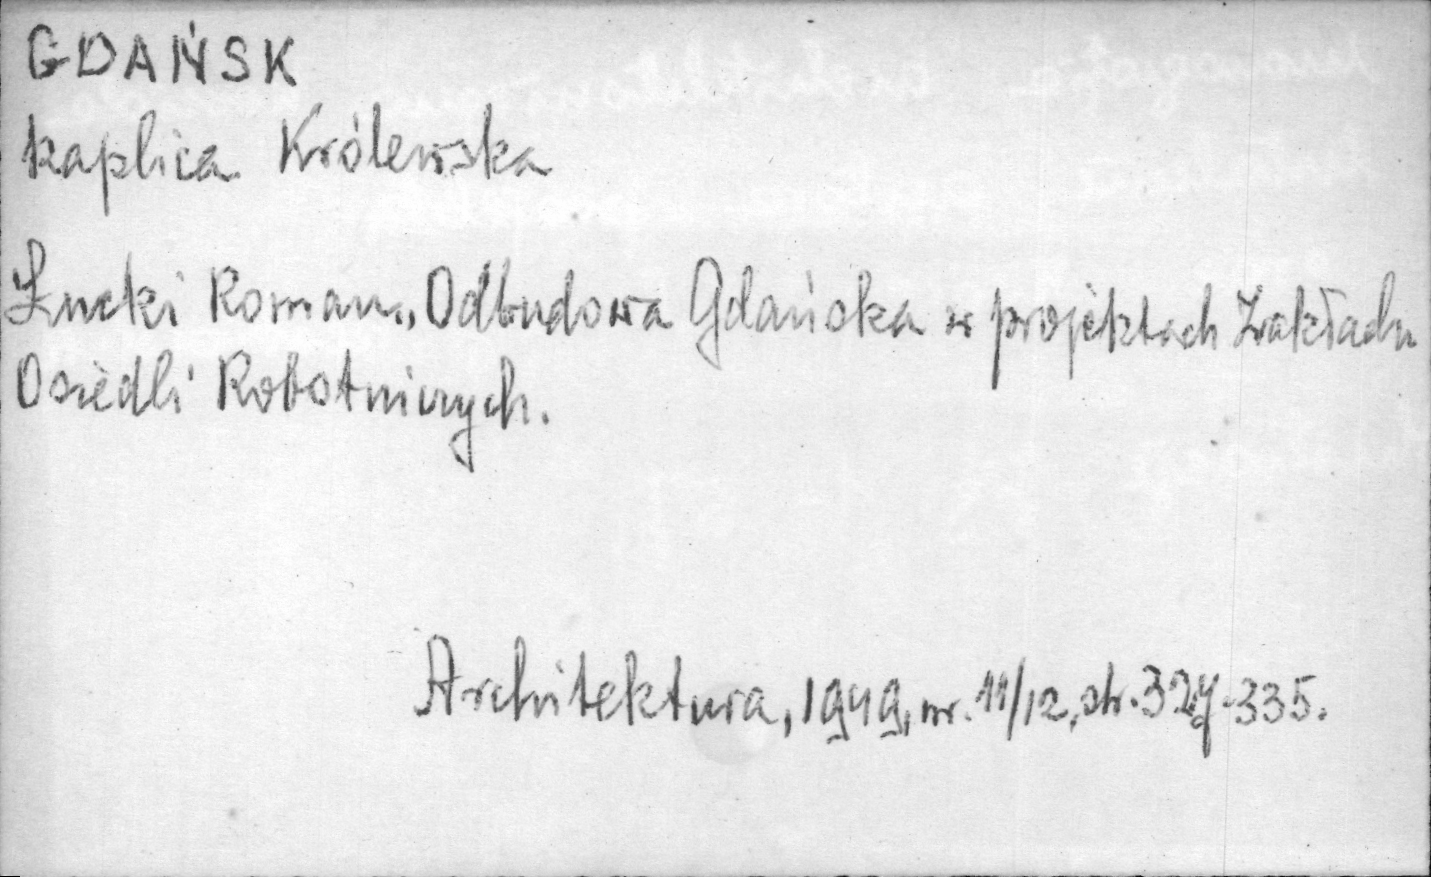 GDAŃSK
kaplica Królewska
Łucki Roman, Odbudowa Gdańska w projektach Zakładu
Osiedli Robotniczych.
Architektura, 1949, nr. 11/12, str. 327-335.